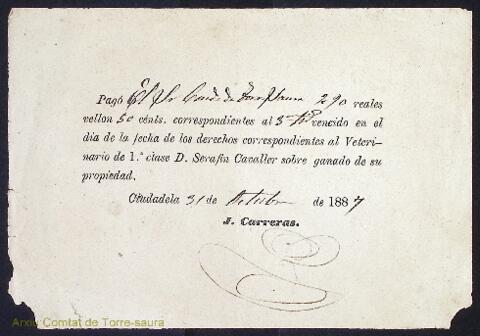 Pagó El Sr Conde de Torre Saura 290 reales
vellon 50 cénts. correspondientes al 3er vencido en el
dia de la fecha de los derechos correspondientes al Veteri-
nario de 1.ª clase D. Serafin Cavaller sobre ganado de su
propiedad.
Ciudadela 31 de Octubre de 1887
J. Carreras.
Arxiu Comtat de Torre-saura